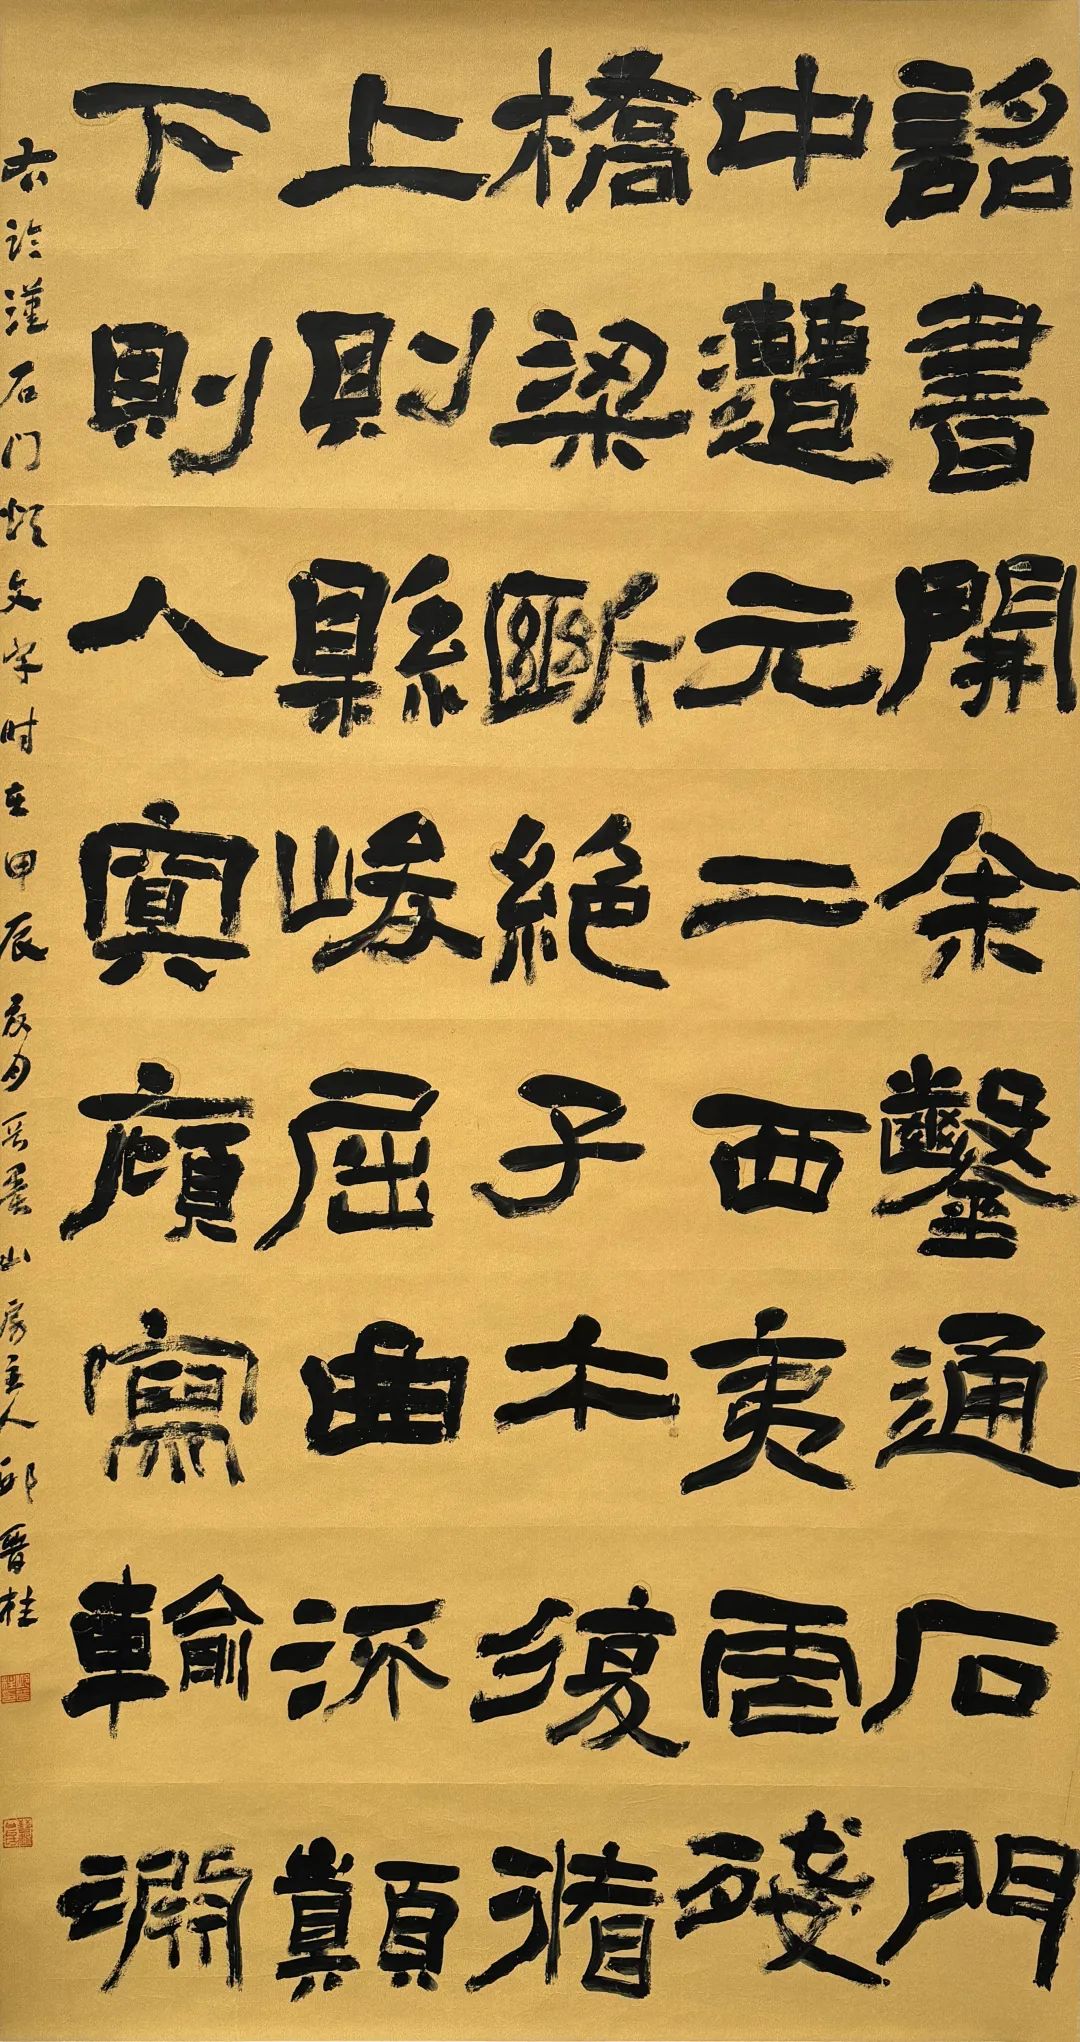 詔書開余鑿通石門
中遭元二西夷虐殘
橋梁斷絕子午復循
上則縣峻屈曲流顛
下則入冥廎寫輸淵
右临漢石门颂文字时在甲辰辰月墨山房主人邱晉桂